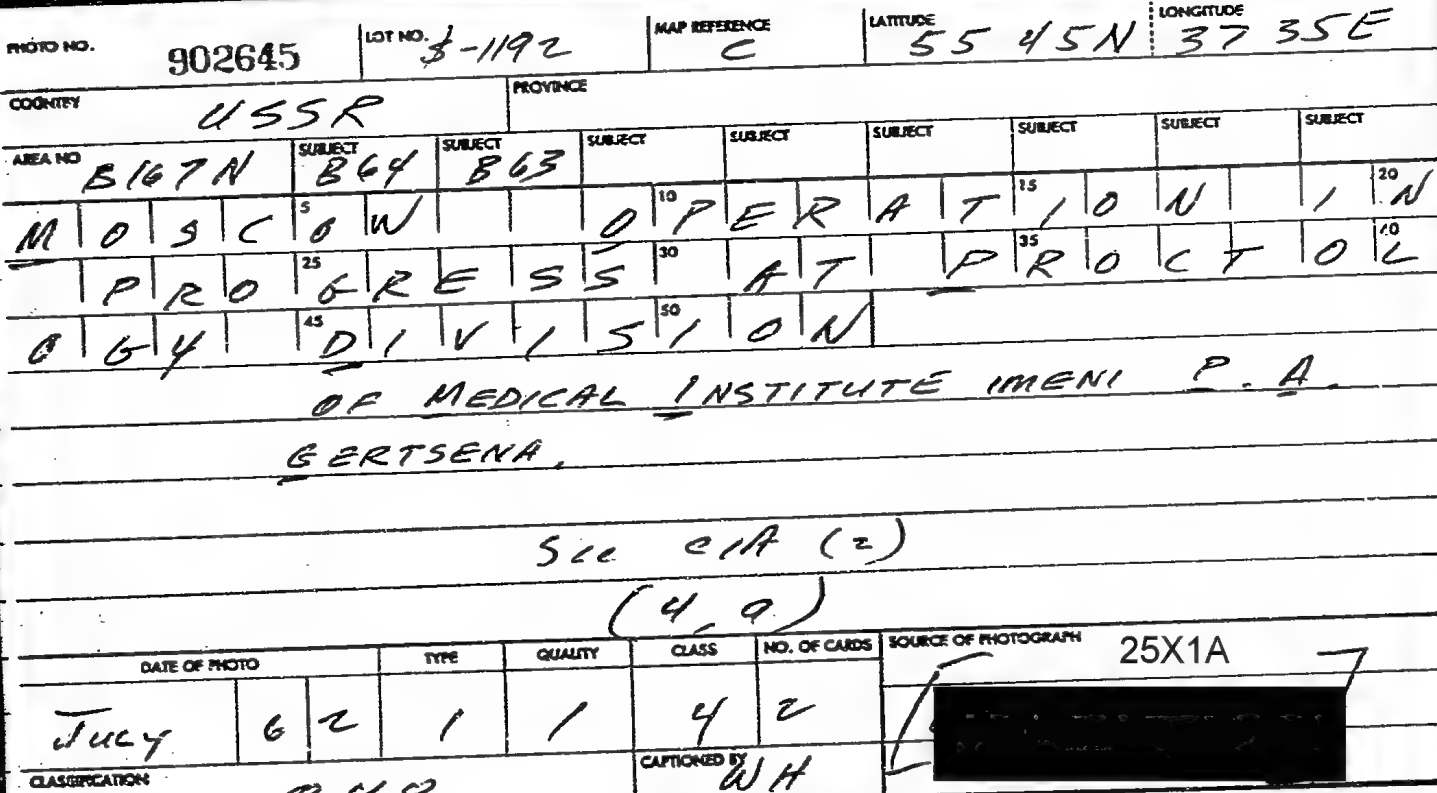 PHOTO NO. 902645 LOT NO. $-1192 MAP REFERENCE C LATITUDE 55 45N LONGITUDE 37 35E
COUNTRY USSR PROVINCE
AREA NO B167N SUBJECT B64 SUBJECT B63 SUBJECT SUBJECT SUBJECT SUBJECT SUBJECT SUBJECT
MOSCOW OPERATION IN
PROGRESS AT PROCTOL
OGY DIVISION
OF MEDICAL INSTITUTE IMENI P. A.
GERTSENA.
See CIA (2)
(4, 9)
DATE OF PHOTO TYPE QUALITY CLASS NO. OF CARDS SOURCE OF PHOTOGRAPH 25X1A
July 62 1 1 4 2
CLASSIFICATION CAPTIONED BY WH